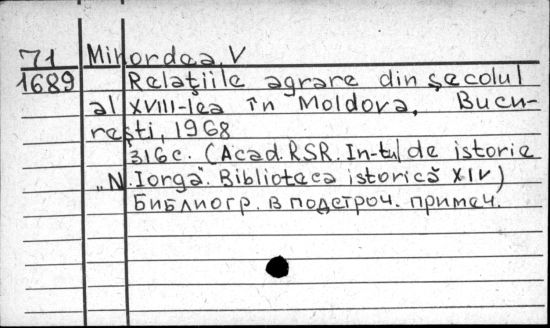 71 Mihordea, V
1689 Relaţiile agrare din şecolul
al XVIII-lea în Moldova, Bucu-
reşti, 1968
316 с. (Acad. RSR. In-tul de istorie
„N. Iorga". Biblioteca istorică XIV)
Библиогр. в подстроч. примеч.